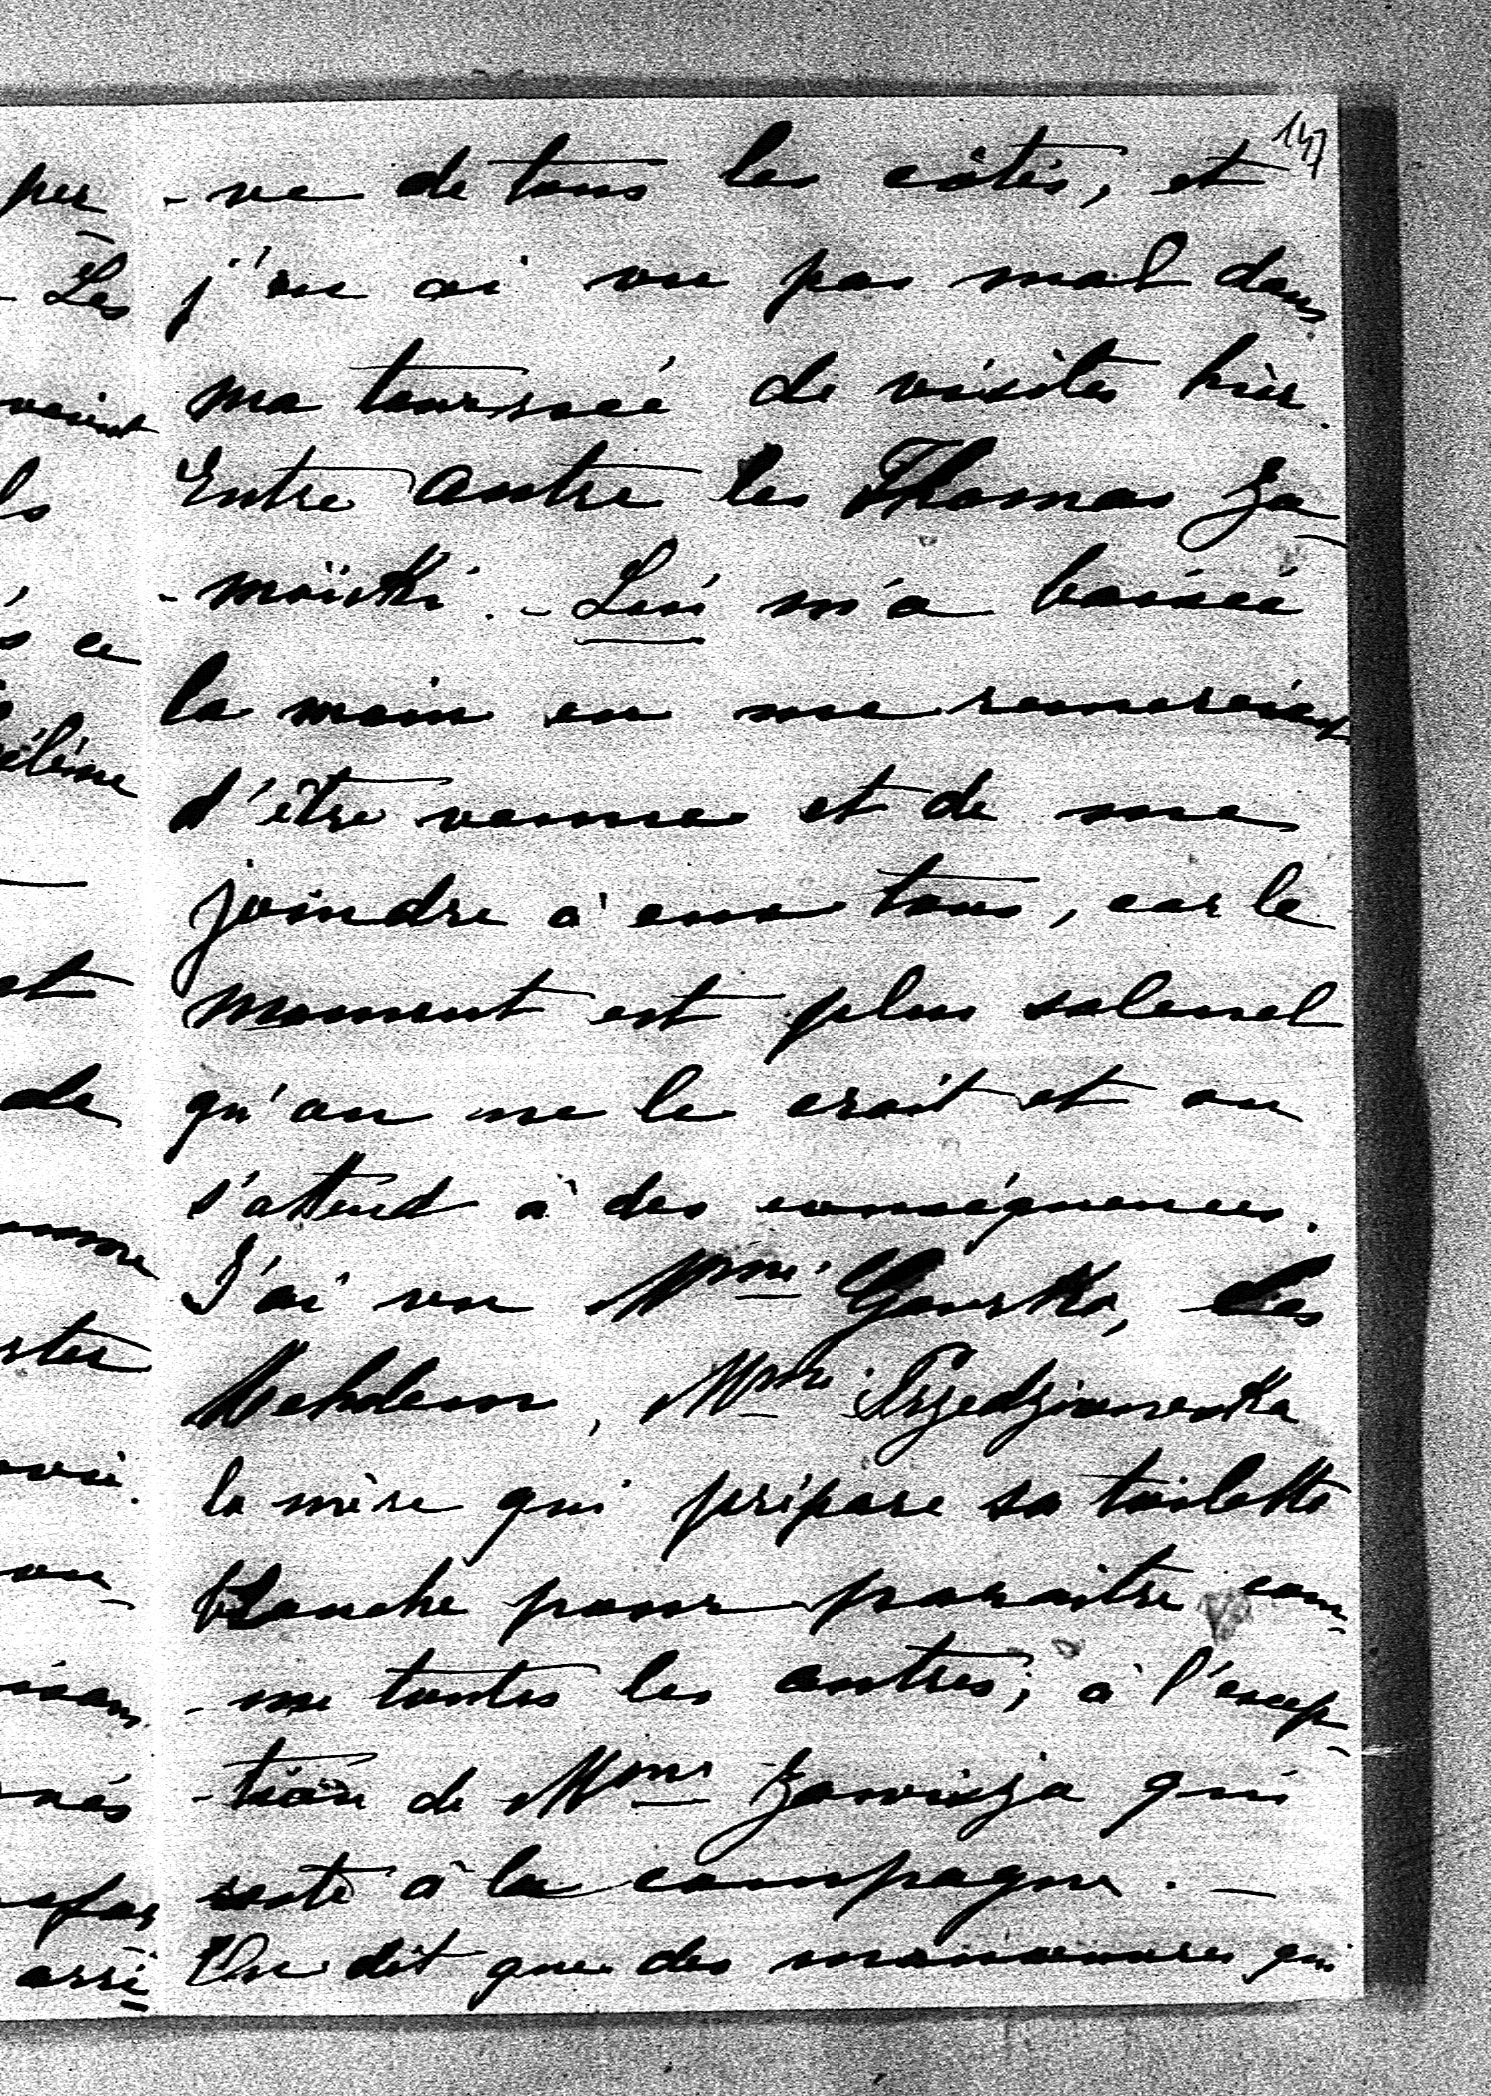 147
-ve de tous les côtés, et
j'en ai vu pas mal dans
ma tournée de visites hier.
Entre autre les Thomas Za
-moïski. - Lui m'a baisée
la main en me remerciant
d'être venue et de me
joindre à eux tous, car le
moment est plus solenel
qu'on ne le croit et on
s'attend à des conséquences.
J'ai vu Mme Gourska, les
Wehdem, Mme Przedziemenska
la mère qui prépare sa toilette
blanche pour paraitre com
-me toutes les autres; à l'excep
-tion de Mme Zawisza qui
reste à la campagne. -
On dit que des manoeuvres qui
per
- Les
voient
ls
ce
élène
et
de
arri